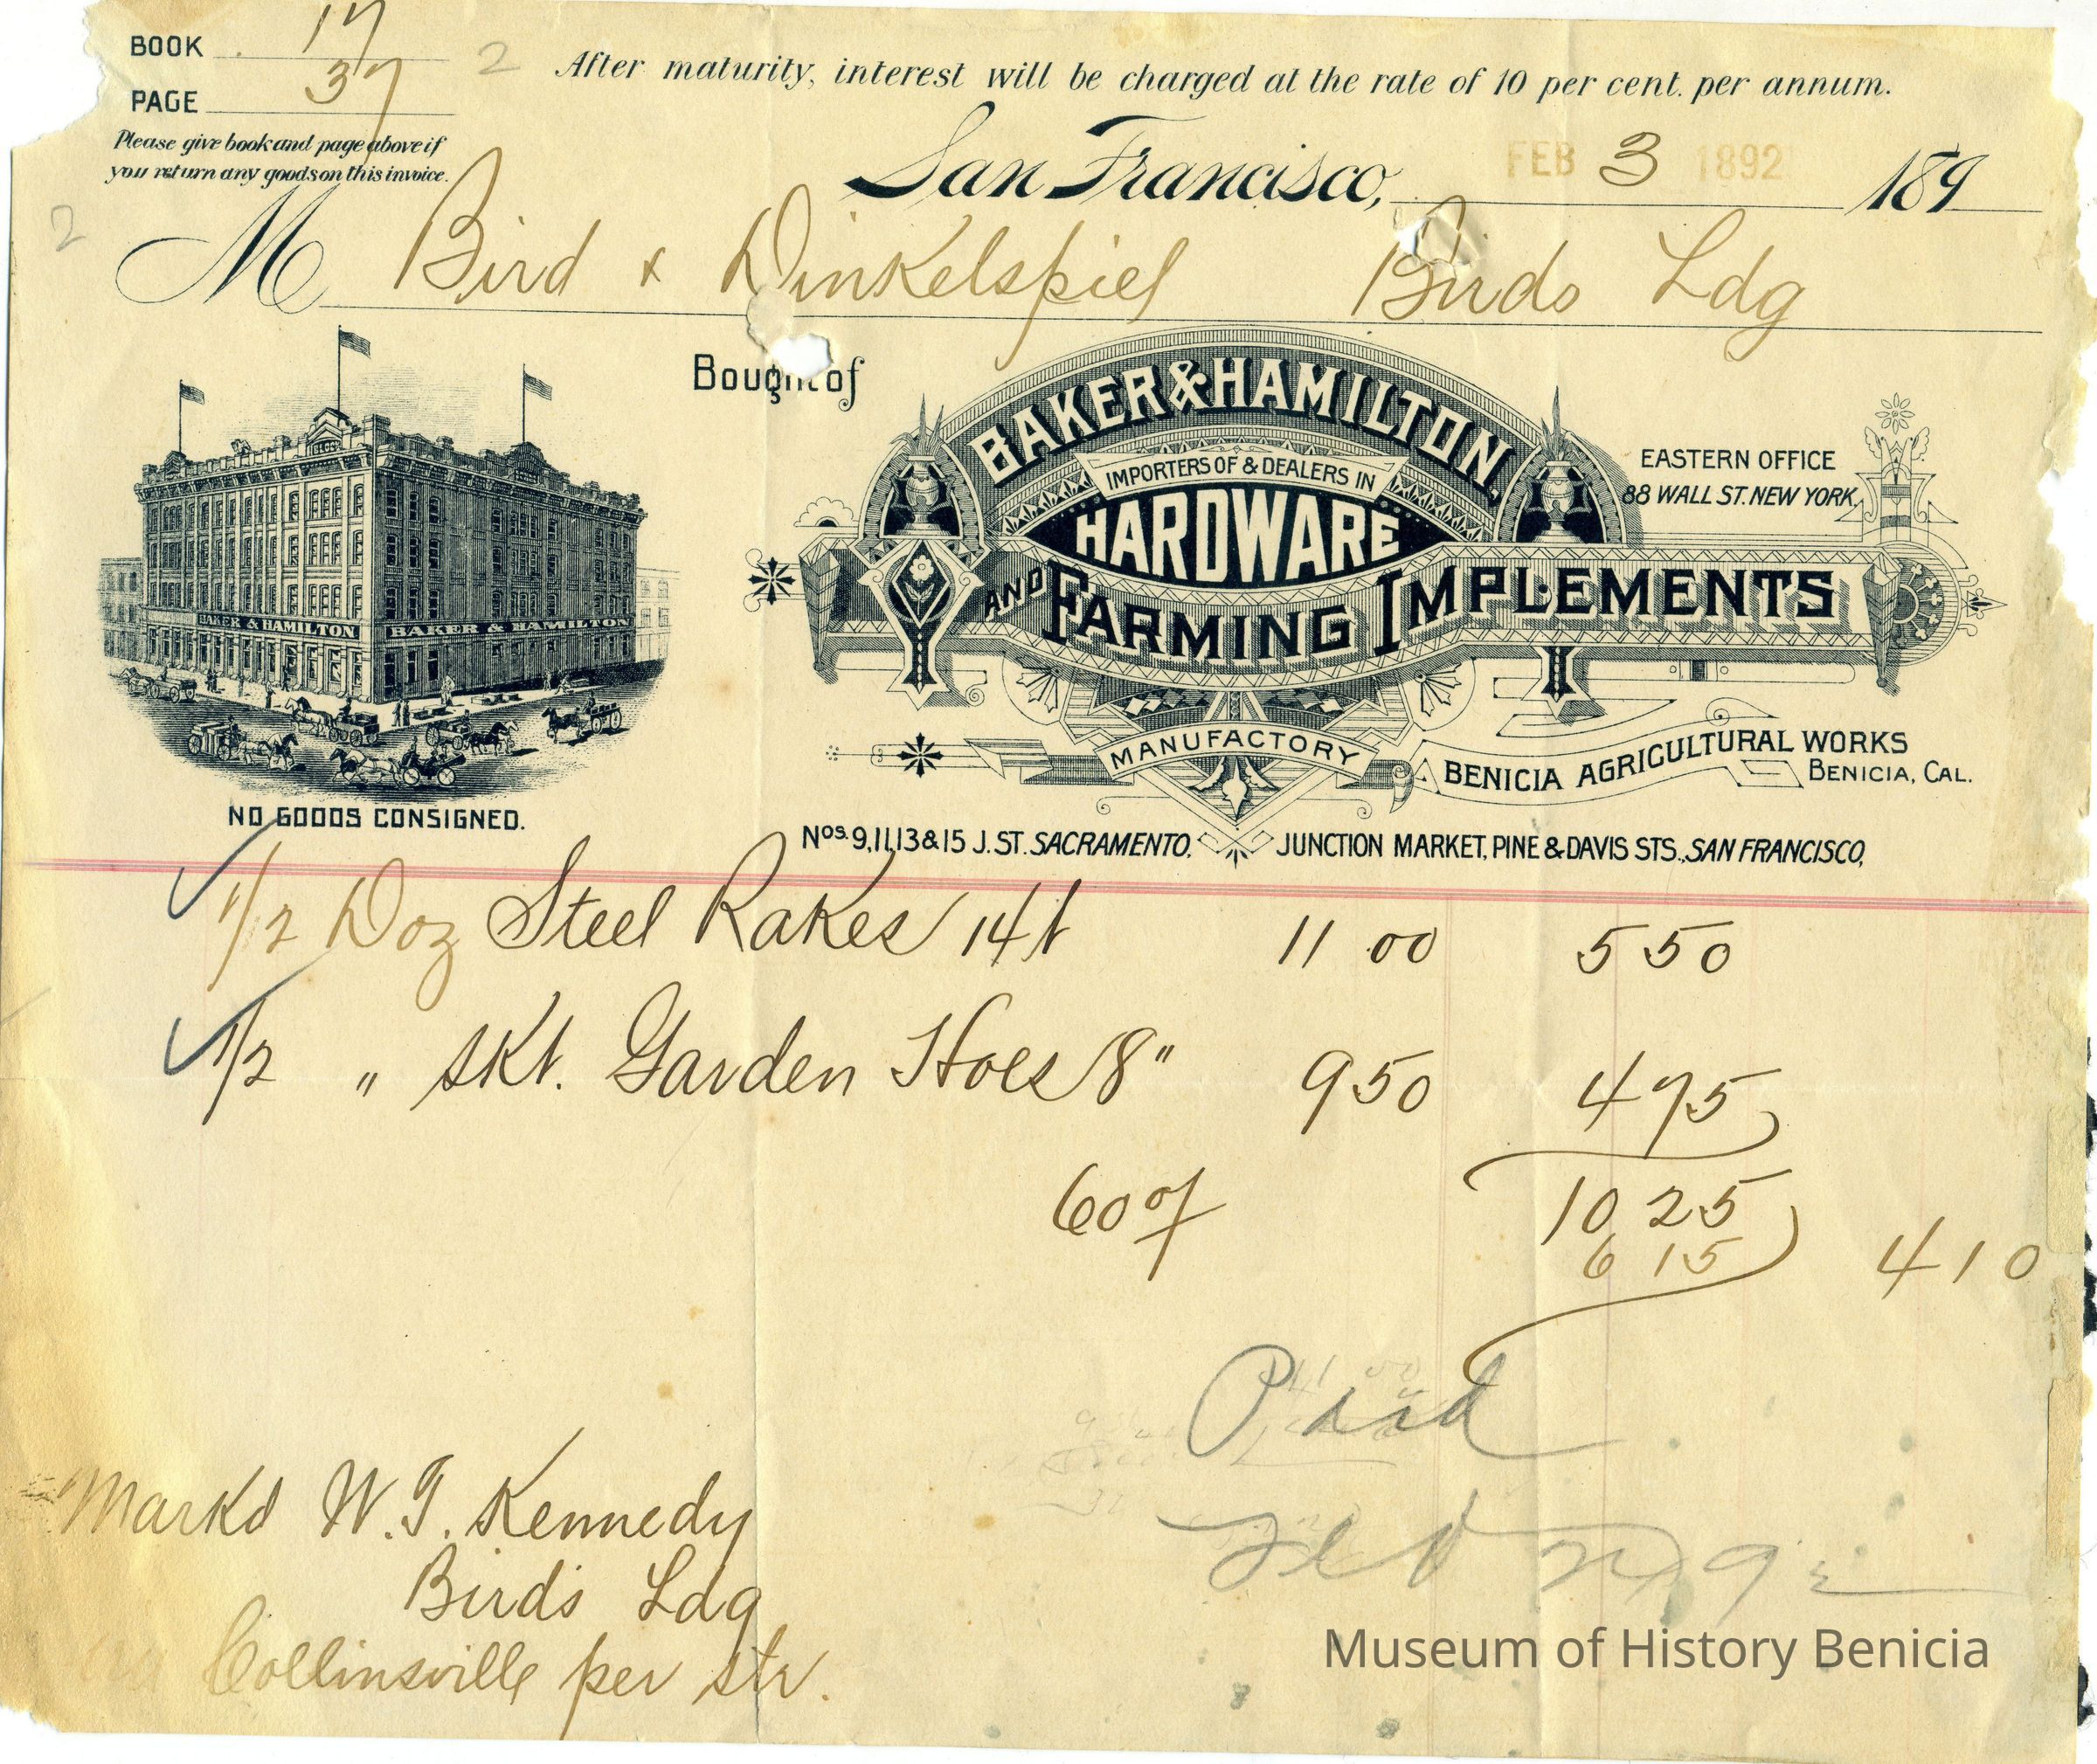 BOOK 17
PAGE 37
2
Please give book and page above if
you return any goods on this invoice.
After maturity, interest will be charged at the rate of 10 per cent. per annum.
San Francisco, FEB 3 1892 189
2
M Bird & Dinkelspiel Birds Ldg
Bought of
BAKER & HAMILTON,
IMPORTERS OF & DEALERS IN
HARDWARE
AND FARMING IMPLEMENTS
EASTERN OFFICE
88 WALL ST. NEW YORK.
BAKER & HAMILTON BAKER & HAMILTON
MANUFACTORY
BENICIA AGRICULTURAL WORKS
BENICIA, CAL.
NO GOODS CONSIGNED.
Nos. 9, 11, 13 & 15 J. ST. SACRAMENTO, JUNCTION MARKET, PINE & DAVIS STS., SAN FRANCISCO,
1/2 Doz Steel Rakes 14t 11 00 5 50
1/2 " Skt. Garden Hoes 8" 9 50 4 75
10 25
60% 6 15 4 10
Paid
Markd W. T. Kennedy
Birds Ldg
Collinsville per Str.
Museum of History Benicia